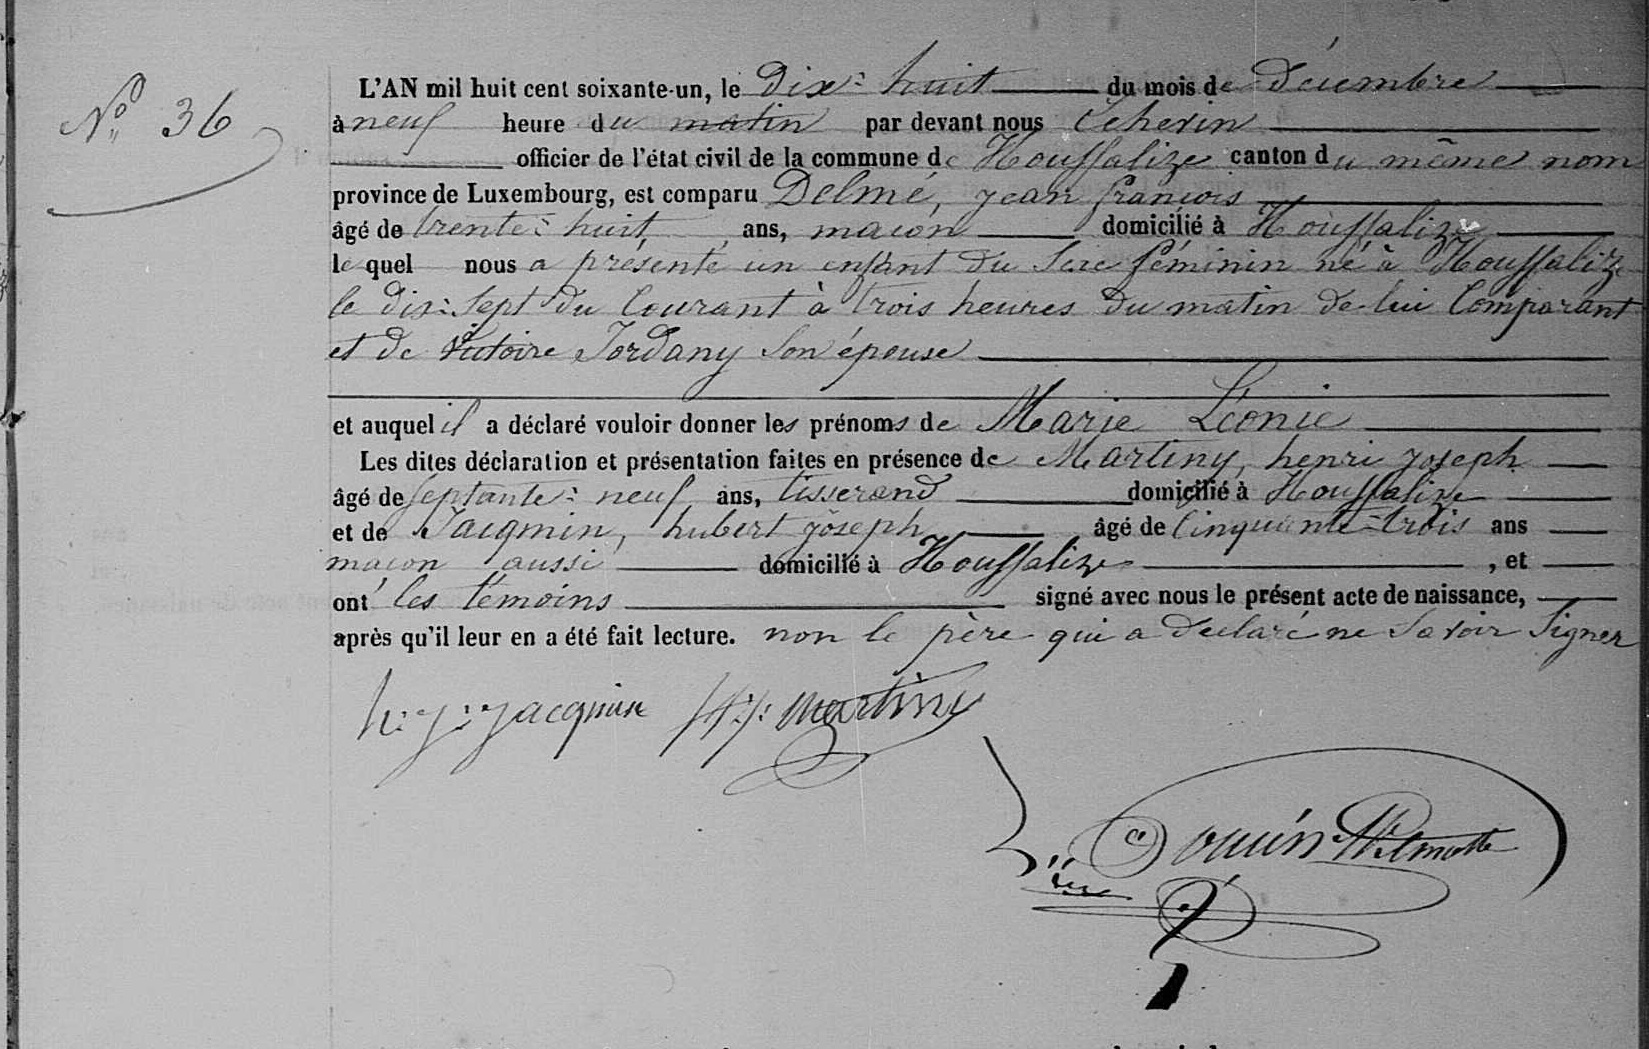 Nº 36
L'AN mil huit cent soixante-un, le dix-huit du mois de Décembre
à neuf heure du matin par devant nous Echevin
officier de l'état civil de la commune de Houffalize canton du même nom
province de Luxembourg, est comparu Delmé, jean françois
âgé de trente-huit ans, macon domicilié à Houffalize
lequel nous a présenté un enfant du sexe féminin né à Houffalize
le dix-sept du Courant à trois heures du matin de lui Comparant
et de Victoire Jordany son épouse
et auquel il a déclaré vouloir donner les prénoms de Marie Léonie
Les dites déclaration et présentation faites en présence de Martiny, henri joseph
âgé de septante-neuf ans, tisserand domicilié à Houffalize
et de Jacqmin, hubert joseph âgé de Cinquante-trois ans
macon aussi domicilié à Houffalize, et
ont les témoins signé avec nous le présent acte de naissance,
après qu'il leur en a été fait lecture. non le père qui a declaré ne savoir signer
h: j: jacqmin H: J: Martiny